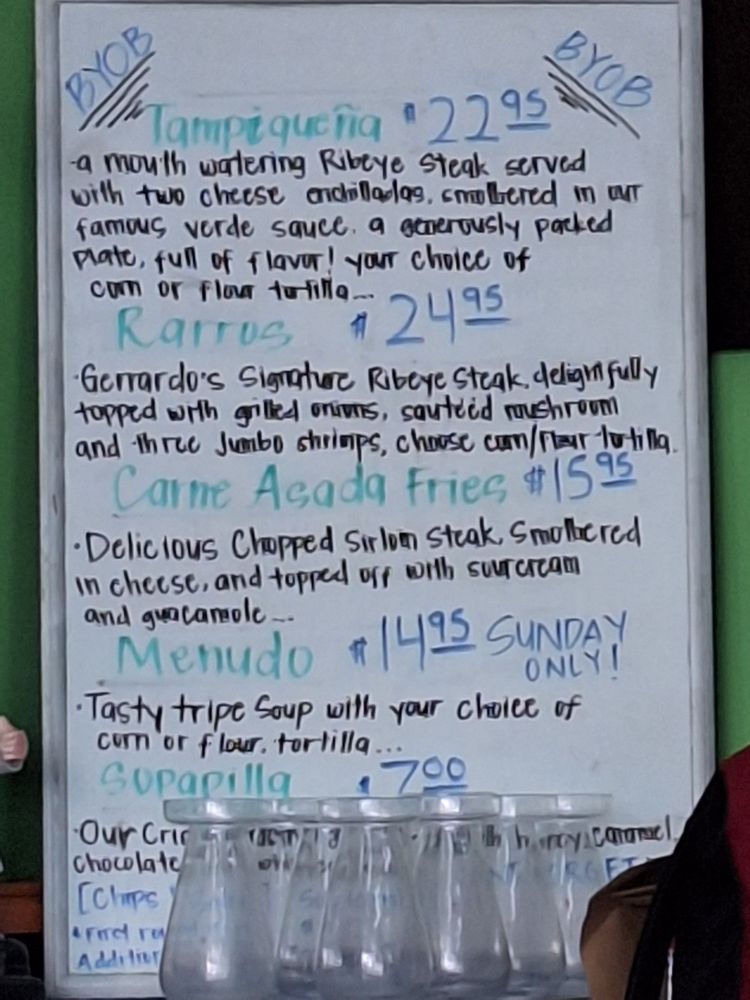 BYOB BYOB
Tampiqueña $22.95
-a mouth watering Ribeye Steak served
with two cheese enchilladas, smothered in our
famous verde sauce. a generously packed
plate, full of flavor! your choice of
corn or flour tortilla...
Rarros $24.95
·Gerrardo's Signature Ribeye Steak, delightfully
topped with grilled onions, sauteéd mushroom
and three Jumbo shrimps, choose corn/flour tortilla.
Carne Asada Fries $15.95
·Delicious Chopped Sirloin Steak, Smothered
in cheese, and topped off with sourcream
and guacamole...
Menudo $14.95 SUNDAY
ONLY!
·Tasty tripe Soup with your choice of
corn or flour. tortilla...
Sopapilla $7.00
·Our caramel
chocolate
[Chips